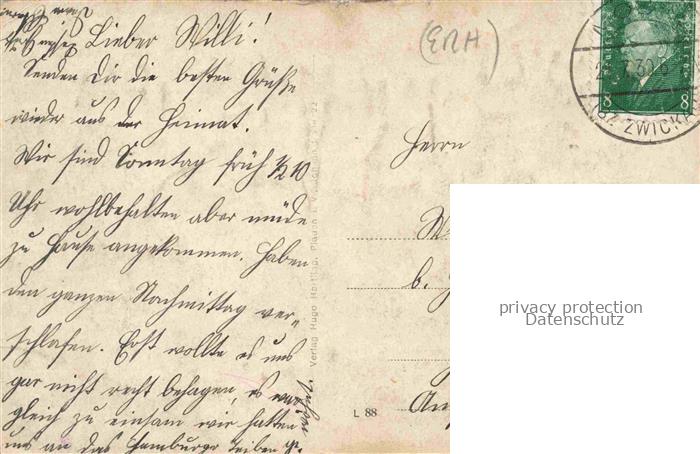 Lieber Willi!
Senden Dir die besten Grüße
wieder aus der Heimat.
Wir sind Sonntag früh ½10
Uhr wohlbehalten aber müde
zu Hause angekommen. Haben
den ganzen Nachmittag ver-
schlafen. Erst wollte es uns
gar nicht recht behagen, es war
gleich zu einsam wir hatten
uns an das Hamburger
(ERH)
Herrn
W
b.
An
L 88
Verlag Hugo Hartllap, Plauen i. V.
Deutsches Reich
8 8
ZWICKA
privacy protection
Datenschutz